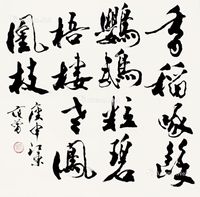 香稻啄餘
鸚鵡粒碧
梧棲老鳳
凰枝
庚申江東
范曾